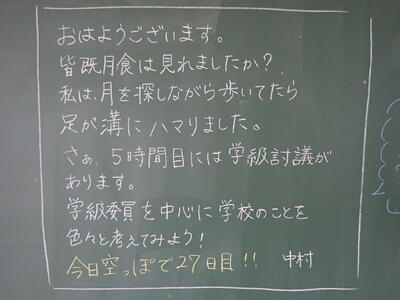 おはようございます。
皆既月食は見れましたか？
私は、月を探しながら歩いてたら
足が溝にハマりました。
さぁ、5時間目には学級討議が
あります。
学級委員を中心に学校のことを
色々と考えてみよう！
今日空っぽで27日目！！ 中村